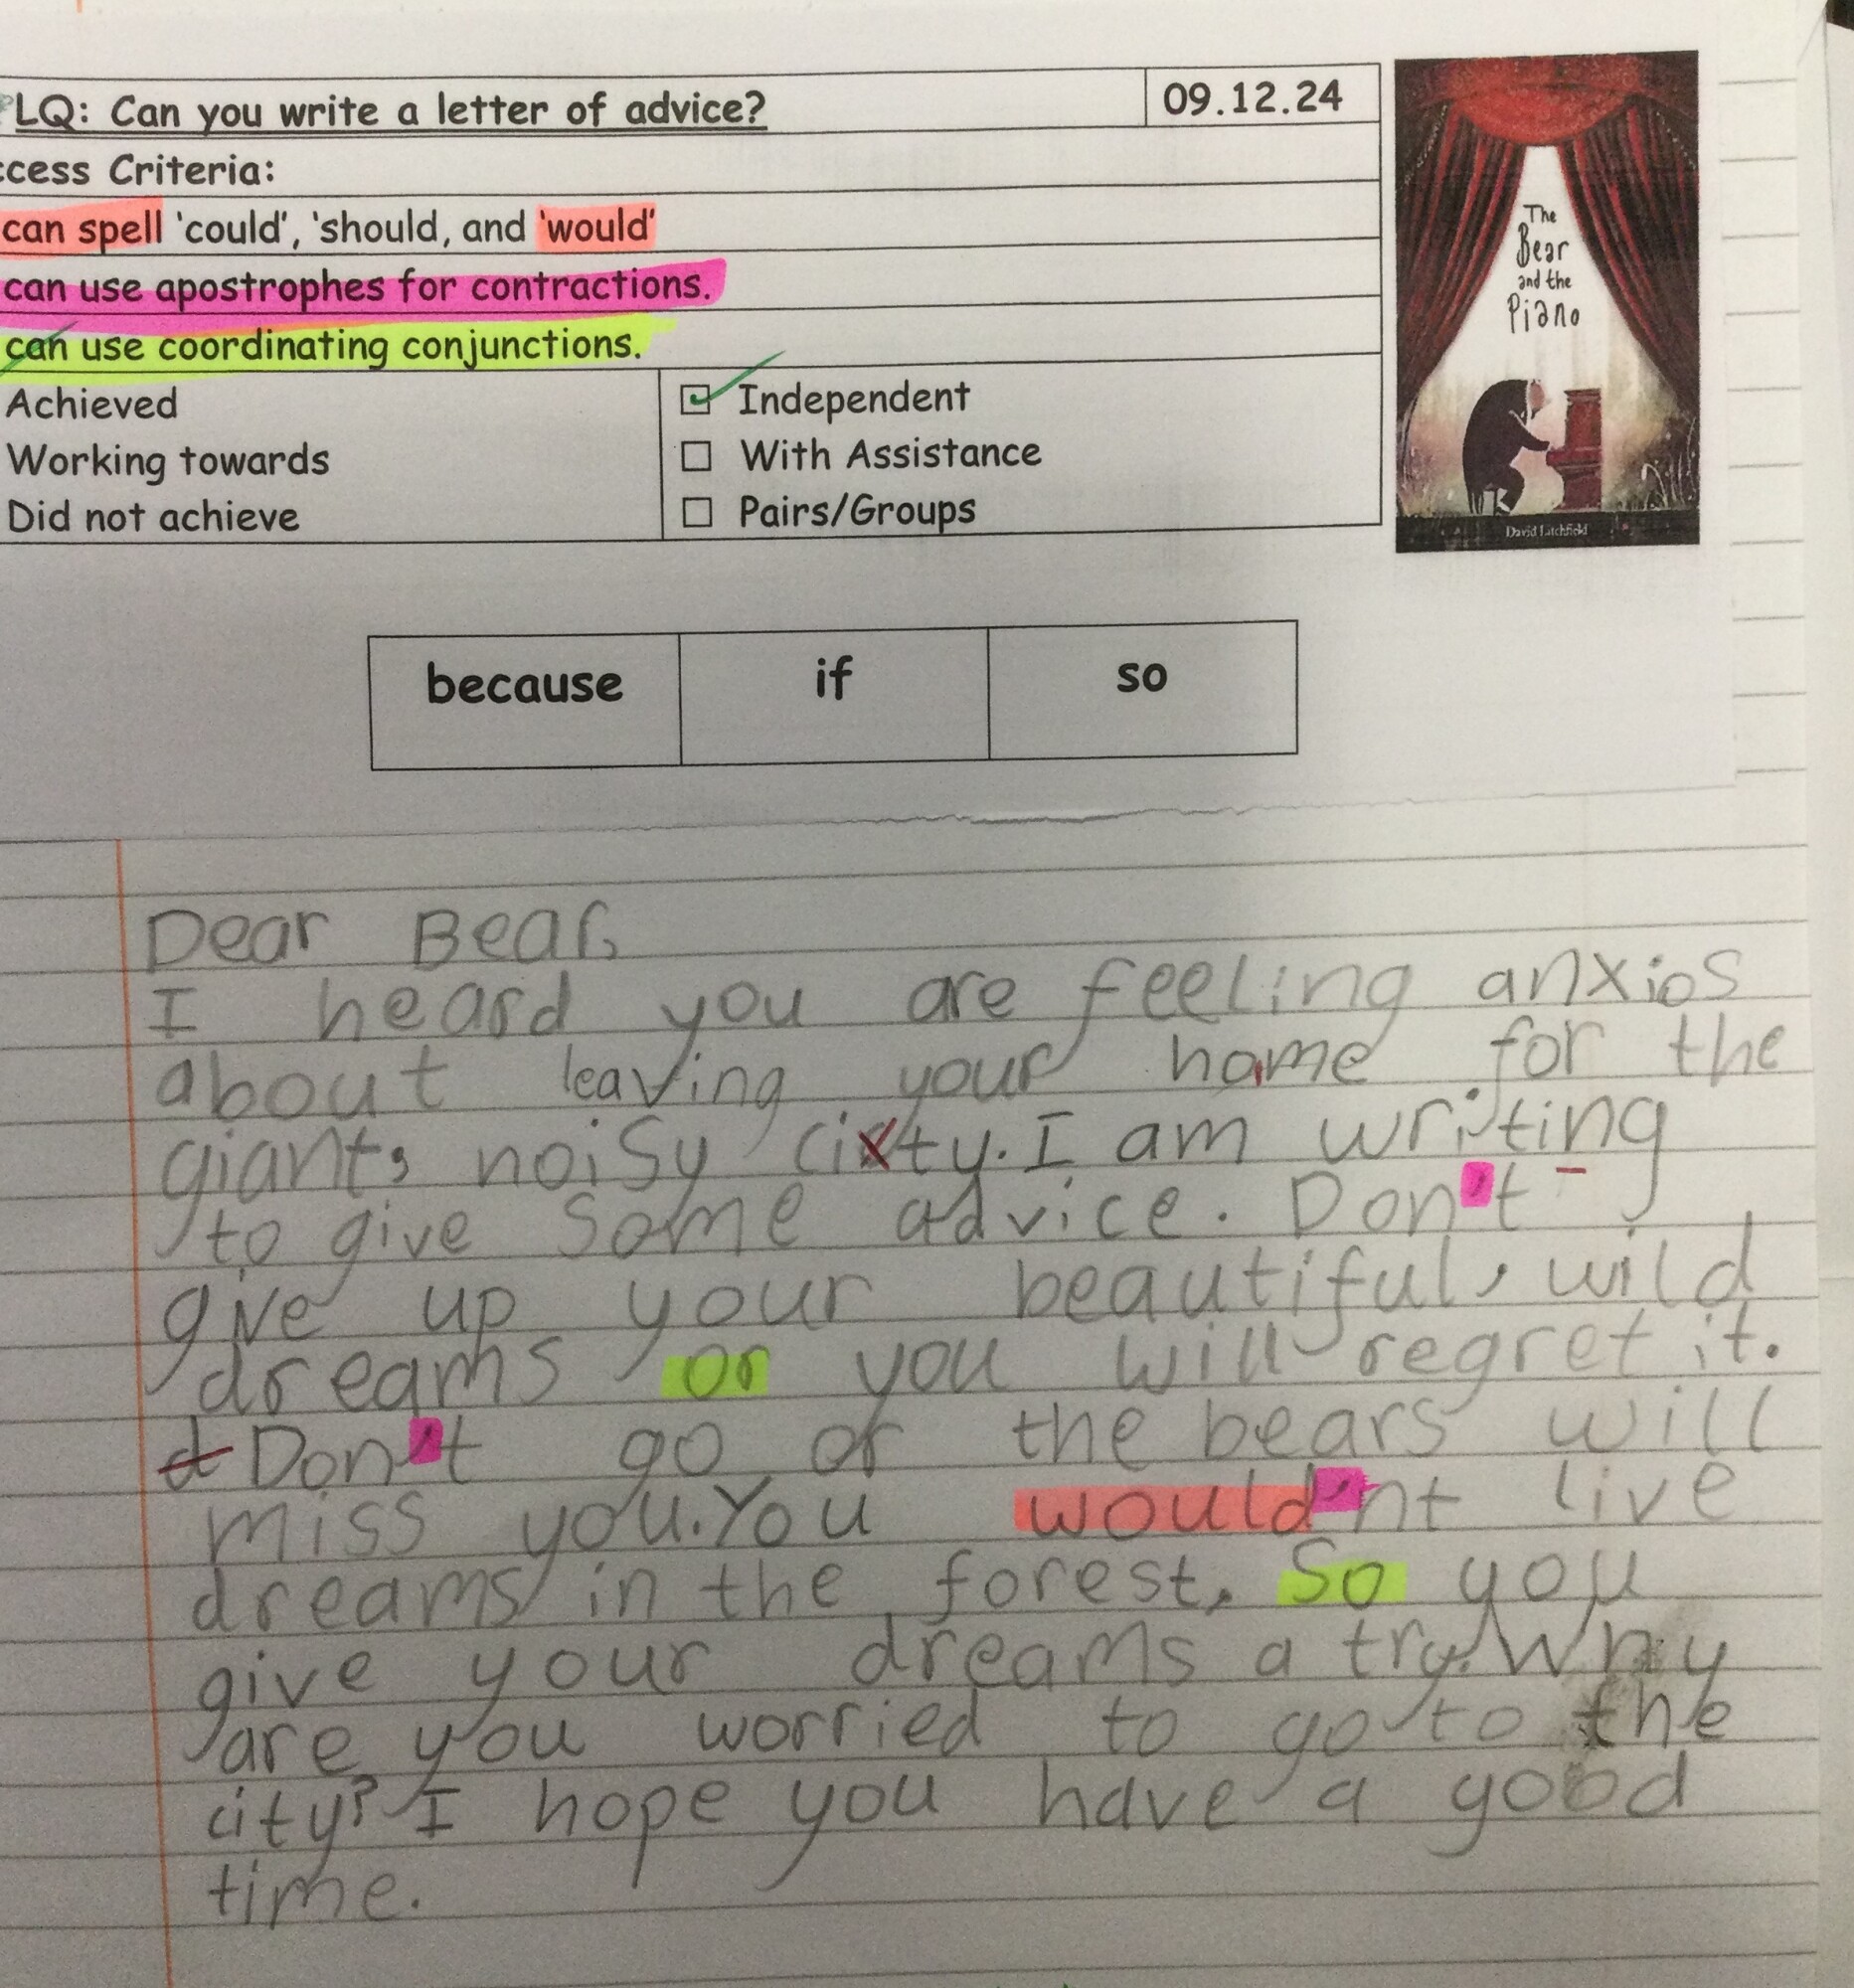 LQ: Can you write a letter of advice?
09.12.24
cess Criteria:
can spell 'could', 'should, and 'would'
can use apostrophes for contractions.
can use coordinating conjunctions.
Achieved
Independent
Working towards
With Assistance
Did not achieve
Pairs/Groups
The
Bear
and the
Piano
David Litchfield
because if so
Dear Bear,
I heard you are feeling anxios
about leaving your home for the
giant, noisy city. I am writing
to give some advice. Don't
give up your beautiful, wild
dreams or you will regret it.
d Don't go or the bears will
miss you. You would'nt live
dreams in the forest. So you
give your dreams a try. Why
are you worried to go to the
city? I hope you have a good
time.